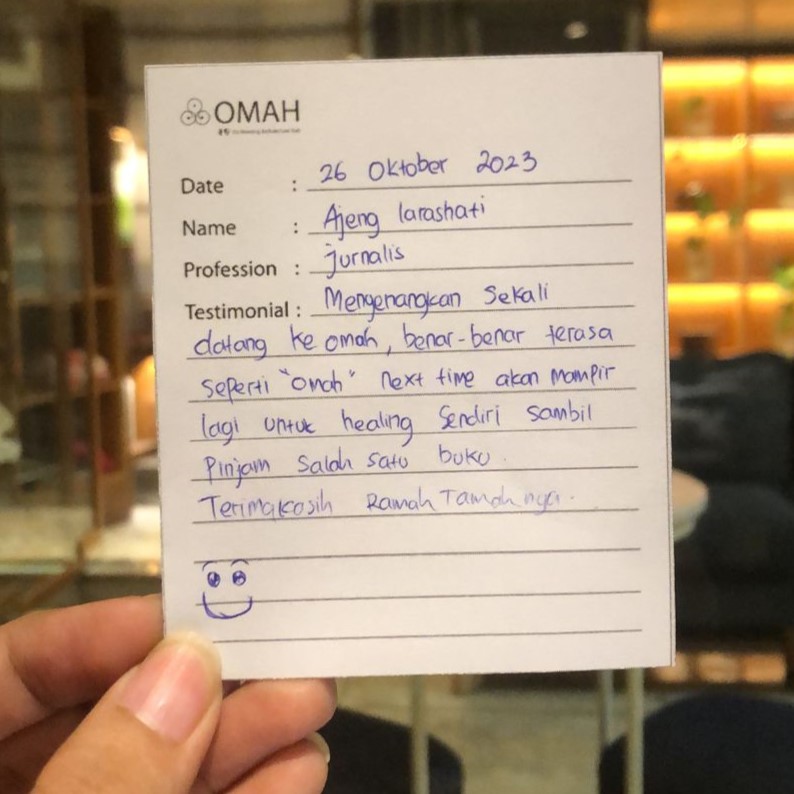 OMAH
Date : 26 Oktober 2023
Name : Ajeng larashati
Profession : Jurnalis
Testimonial : Mengenangkan Sekali
datang ke omah, benar-benar terasa
seperti "omah" next time akan mampir
lagi untuk healing Sendiri sambil
Pinjam Salah satu buku.
Terimakasih Ramah Tamah nya.